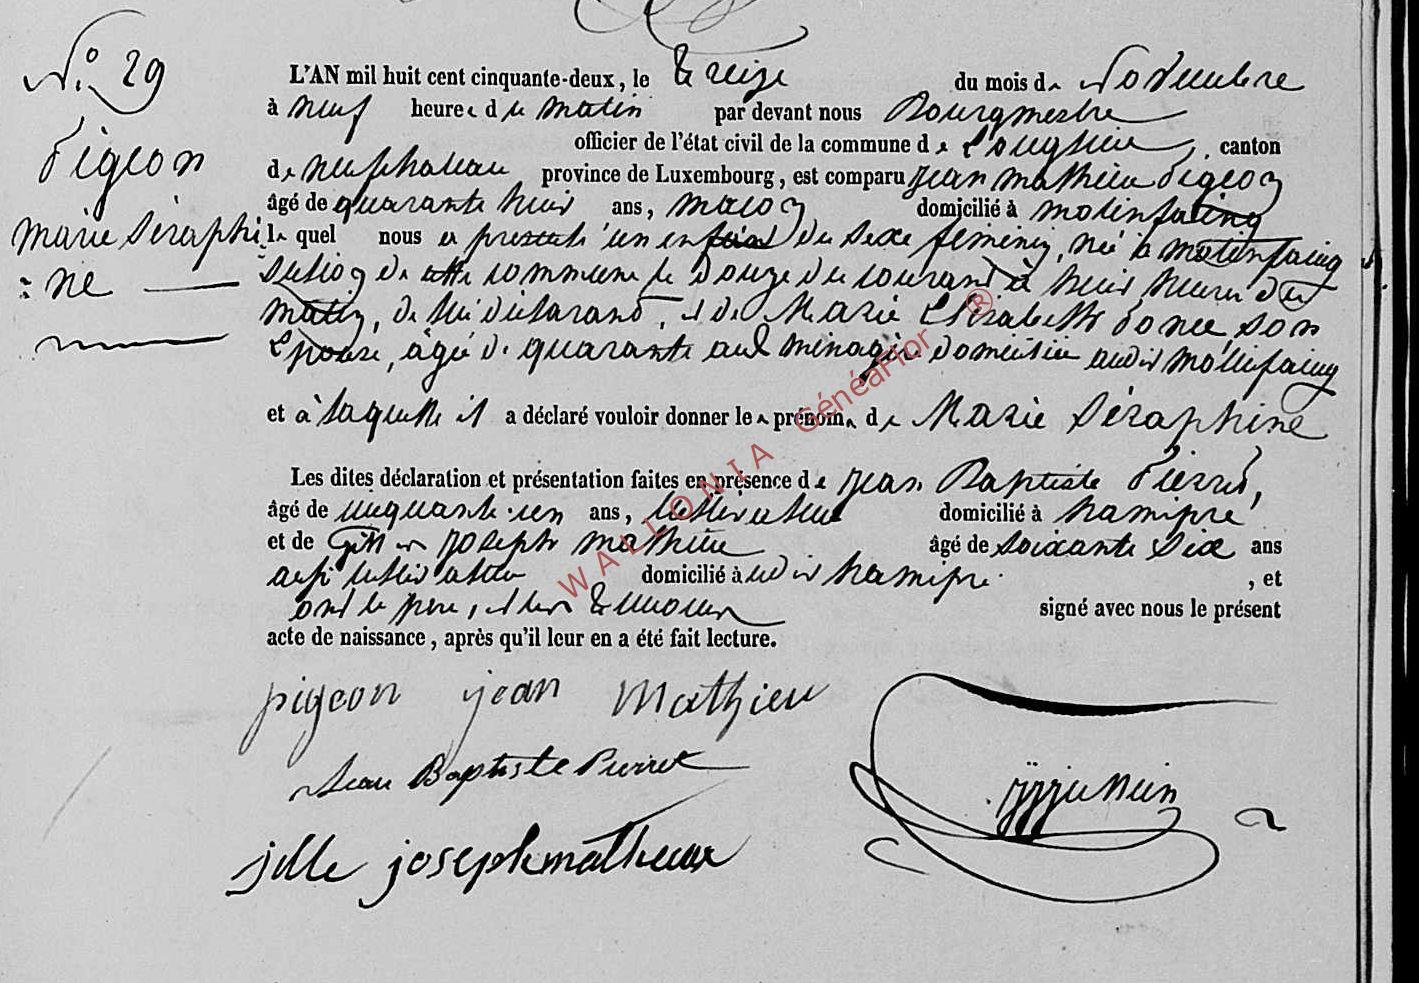 N.º 29
Pigeon
Marie Séraphi
:ne
L'AN mil huit cent cinquante-deux, le treize du mois de Novembre
à neuf heures du matin par devant nous Bourgmestre
officier de l'état civil de la commune de Longlier, canton
de neufchateau province de Luxembourg, est comparu jean mathieu Pigeon
âgé de quarante huit ans, maçon domicilié à molinfaing
le quel nous a présenté un enfant du sexe féminin, né à molinfaing
section de cette commune le douze du courant à huit heures du
matin, de lui déclarant, et de Marie Elisabeth Ponce, son
Epouse, âgée de quarante ans ménagère domiciliée audit molinfaing
et à laquelle il a déclaré vouloir donner les prénoms de Marie Séraphine
Les dites déclaration et présentation faites en présence de jean Baptiste Pierret,
âgé de cinquante-un ans, cultivateur domicilié à hamipré
et de joseph mathieu âgé de soixante six ans
aussi cultivateur domicilié audit hamipré , et
ont le père, et les témoins signé avec nous le présent
acte de naissance, après qu'il leur en a été fait lecture.
pigeon jean Mathieu
Jean Baptiste Pierret
jille joseph mathieux
WALLONIA GénéaFlor ®